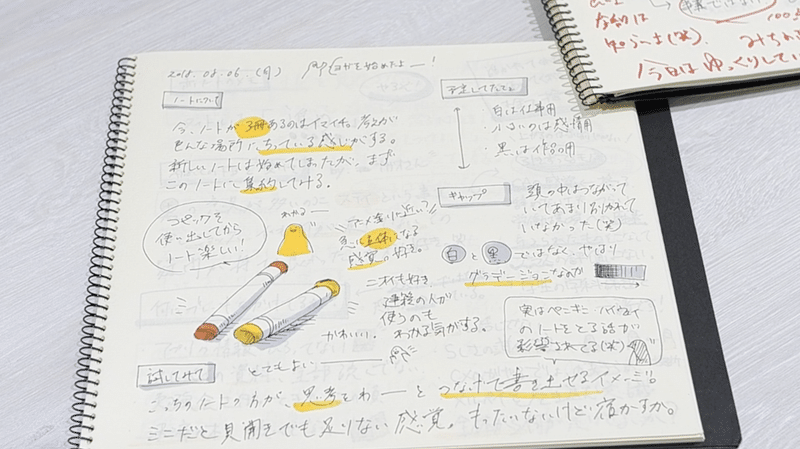 2018.08.06.(月)
ノートについて
今、ノートが3冊あるのはイマイチ。考えが
そんな場所にちっている感じがする。
新しいノートは始めてしまったが、まず
このノートに集約してみる。
コピックを
使い出してから
ノート楽しい!
わかるー
アニメ塗りに近い?
急に立体になる
感覚。好き。
ニオイも好き。
建築の人が
使うのも
わかる気がする。
かわいい。
予定してたこと
白は仕事用
・小さいのは感情用
・黒は作品用
ギャップ
頭の中はつながって
いてあまり分かれて
いなかった(笑)
白と黒ではなく、やはり
グラデーションなのか
実はぺこぱこ ハイウェイ
のノートをとる話が
影響されてる(笑)
試してみて
とてもよい
こっちのノートの方が、思考をわーっと つなげて書き出せるイメージ!
ミニだと見開きでも足りない感覚。もったいないけど宿かすか。
なのは
知らこま(笑)、
今日はゆっくりしてい